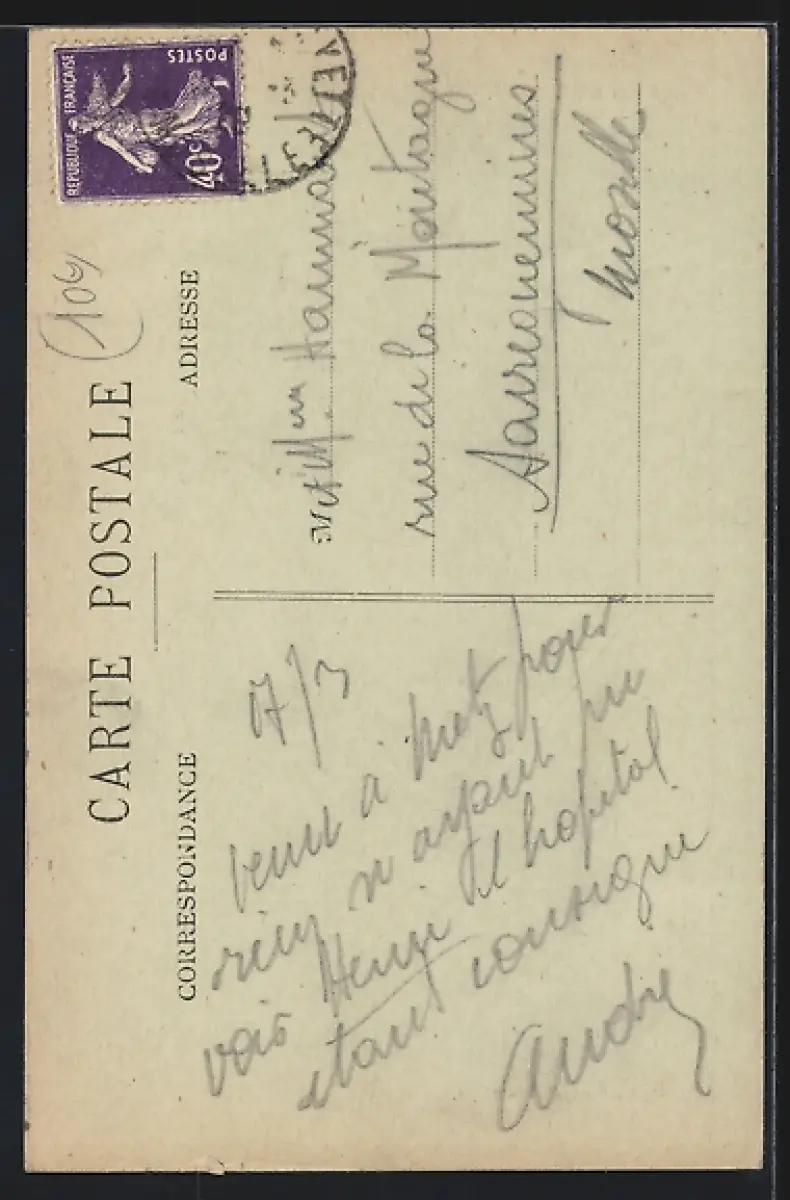 CARTE POSTALE
CORRESPONDANCE
ADRESSE
REPUBLIQUE FRANÇAISE
POSTES
40c
(104
7/3
venu à Metz pour
rien n ayant pu
voir Henri l hopital
etant consigné
André
M et Mme
rue de la Montagne
Moselle